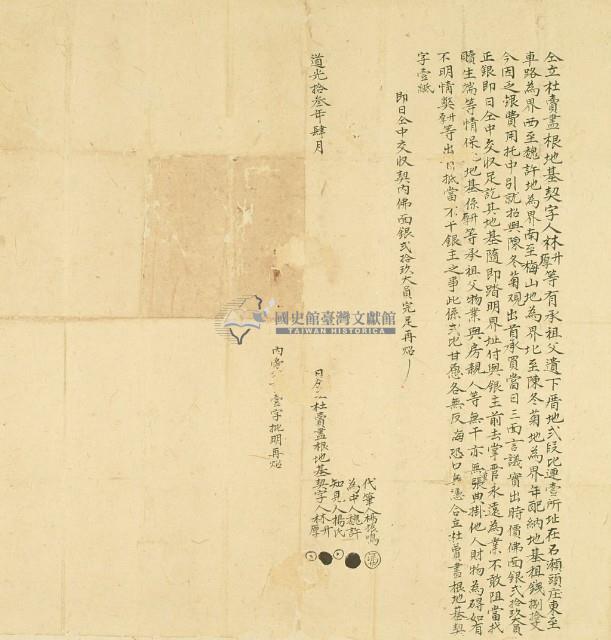 仝立杜賣盡根地基契字人林升厚等有承祖父遺下厝地弍段比連壹所址在石瀨頭庄東至
車路為界西至魏許地為界南至梅山地為界北至陳冬菊地為界年配納地基租錢捌拾文
今因乏銀費用托中引就招與陳冬菊觀出首承買當日三面言議實出時價佛面銀弍拾玖大員
正銀即日仝中交收足訖其地基隨即踏明界址付與銀主前去掌管永遠為業不敢阻當找
贖生端等情保地基係等承祖父物業與房親人等無干亦無張典掛他人財物為碍如有
不明情獘等出抵當不干銀主之事此係弍比甘愿各無反悔恐口無憑合立杜賣盡根地基契
字壹紙
即日仝中交收契內佛面銀弍拾玖大員完足再炤
道光拾叁年肆月
代筆人楊
為中人魏許
知見人楊氏
日仝立杜賣盡根地基契字人林升厚
內壹字批明再炤
國史館臺灣文獻館
TAIWAN HISTORICA